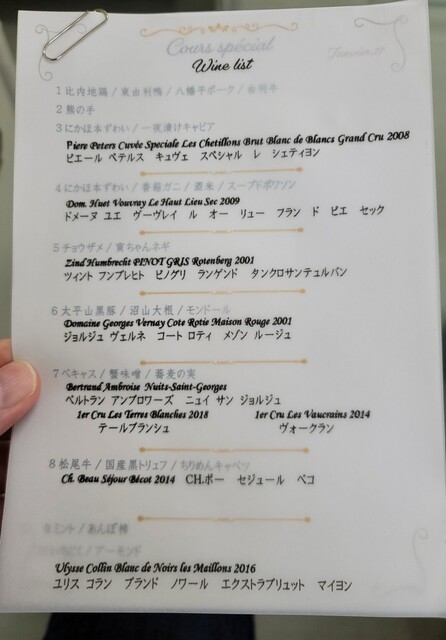 Cours spécial
Wine list
1 比内地鶏 / 東由利鴨 / 八幡平ポーク / 由利牛
2 熊の手
3 にかほ本ずわい / 一夜漬けキャビア
Piere Peters Cuvée Speciale Les Chetillons Brut Blanc de Blancs Grand Cru 2008
ピエール ペテルス キュヴェ スペシャル レ シェティヨン
4 にかほ本ずわい / 香箱ガニ / 酒米 / スープドポワソン
Dom. Huet Vouvray Le Haut Lieu Sec 2009
ドメーヌ ユエ ヴーヴレイ ル オー リュー フラン ド ピエ セック
5 チョウザメ / 寅ちゃんネギ
Zind Humbrecht PINOT GRIS Rotenberg 2001
ツィント フンブレヒト ピノグリ ランゲンド タンクロサンテュルバン
6 太平山黒豚 / 沼山大根 / モンドール
Domaine Georges Vernay Cote Rotie Maison Rouge 2001
ジョルジュ ヴェルネ コート ロティ メゾン ルージュ
7 ベキャス / 蟹味噌 / 蕎麦の実
Bertrand Ambroise Nuits-Saint-Georges
ベルトラン アンブロワーズ ニュイ サン ジョルジュ
1er Cru Les Terres Blanches 2018 1er Cru Les Vaucrains 2014
テールブランシュ ヴォークラン
8 松尾牛 / 国産黒トリュフ / ちりめんキャベツ
Ch. Beau Séjour Bécot 2014 CH.ボー セジュール ベコ
ミント / あんぽ柿
/ アーモンド
Ulysse Collin Blanc de Noirs les Maillons 2016
ユリス コラン ブランド ノワール エクストラブリュット マイヨン